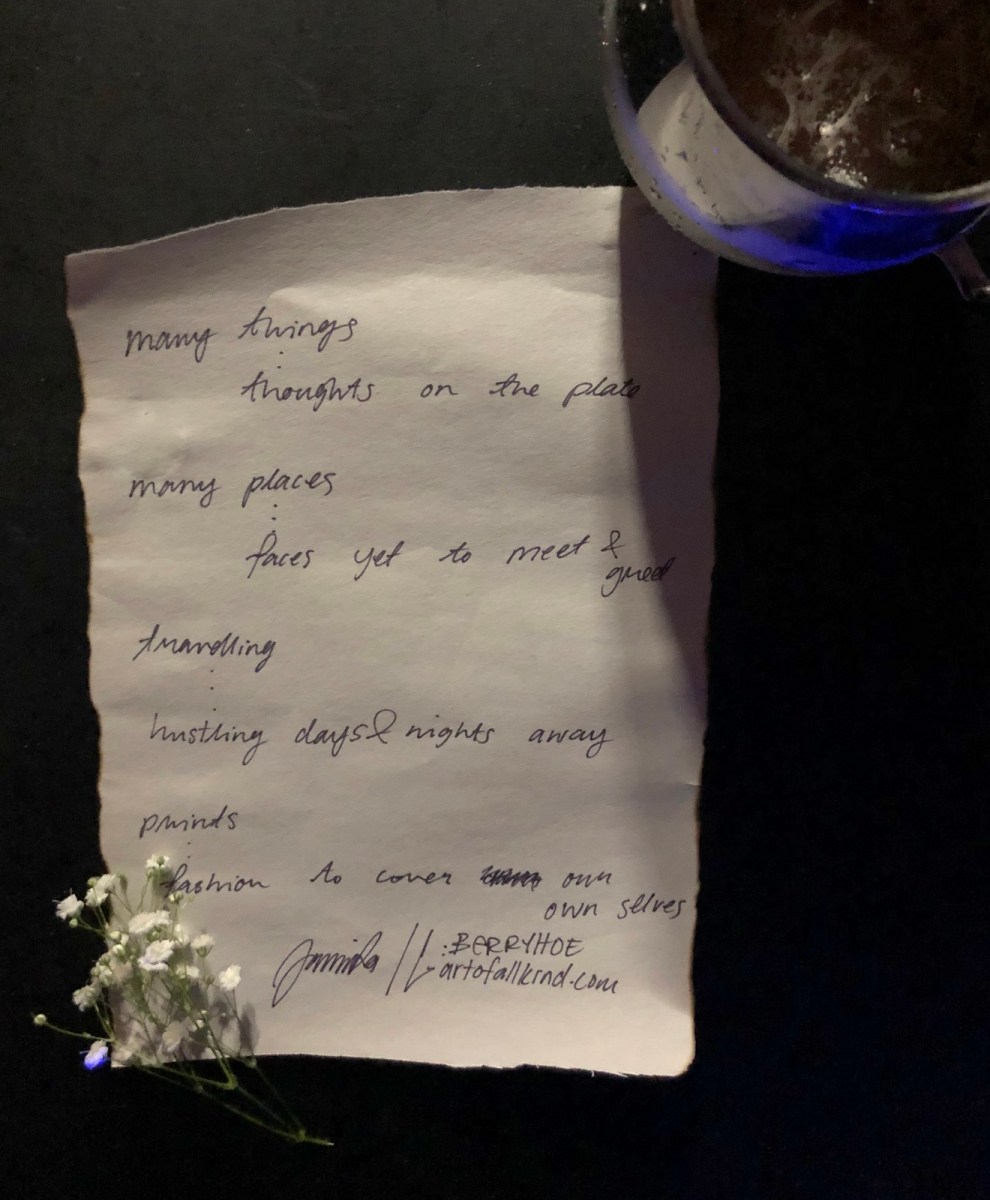 many things
thoughts on the plate
many places
faces yet to meet &
greet
travelling
hustling days & nights away
prints
fashion to cover our
own selves
:BERRYHOE
artofallkind.com